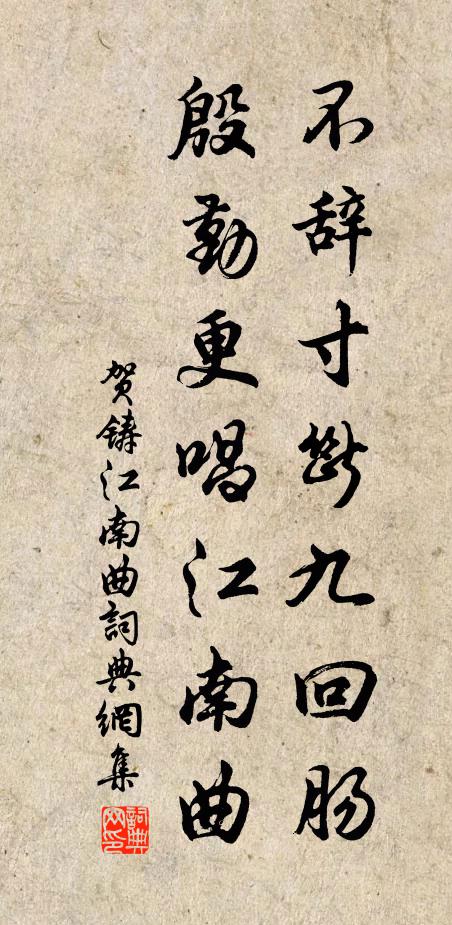 不辞寸断九回肠
殷勤更唱江南曲
贺铸江南曲詞典網集
詞典网印